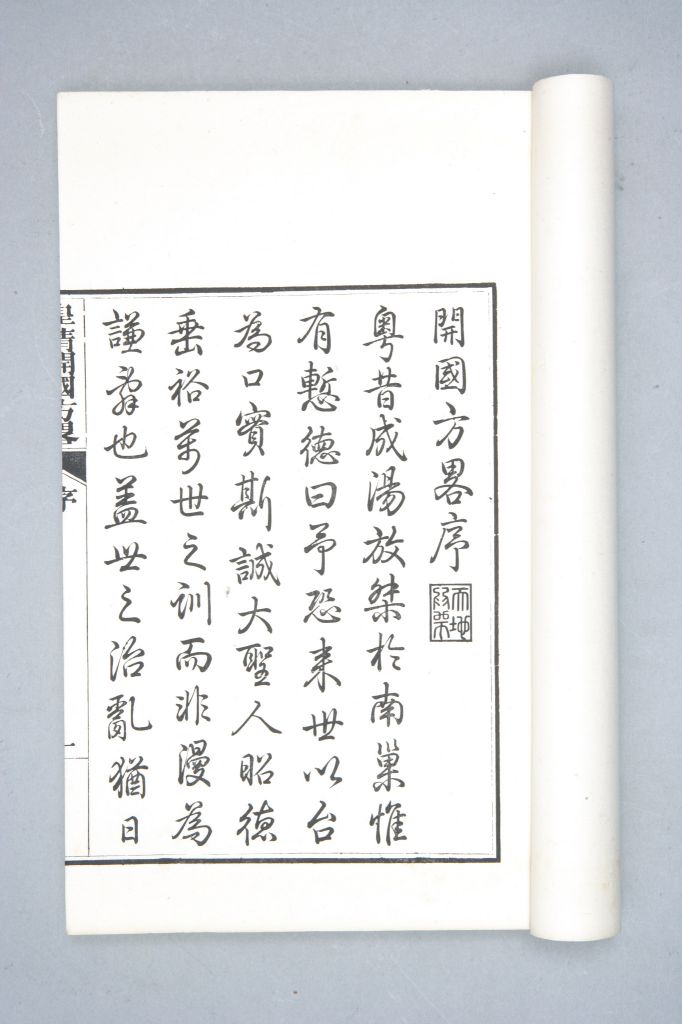 開國方畧序
粵昔成湯放桀於南巢惟
有慙德曰予恐來世以台
為口實斯誠大聖人昭德
垂裕萬世之訓而非漫為
謙辭也蓋世之治亂猶日
皇清開國方畧
序
一